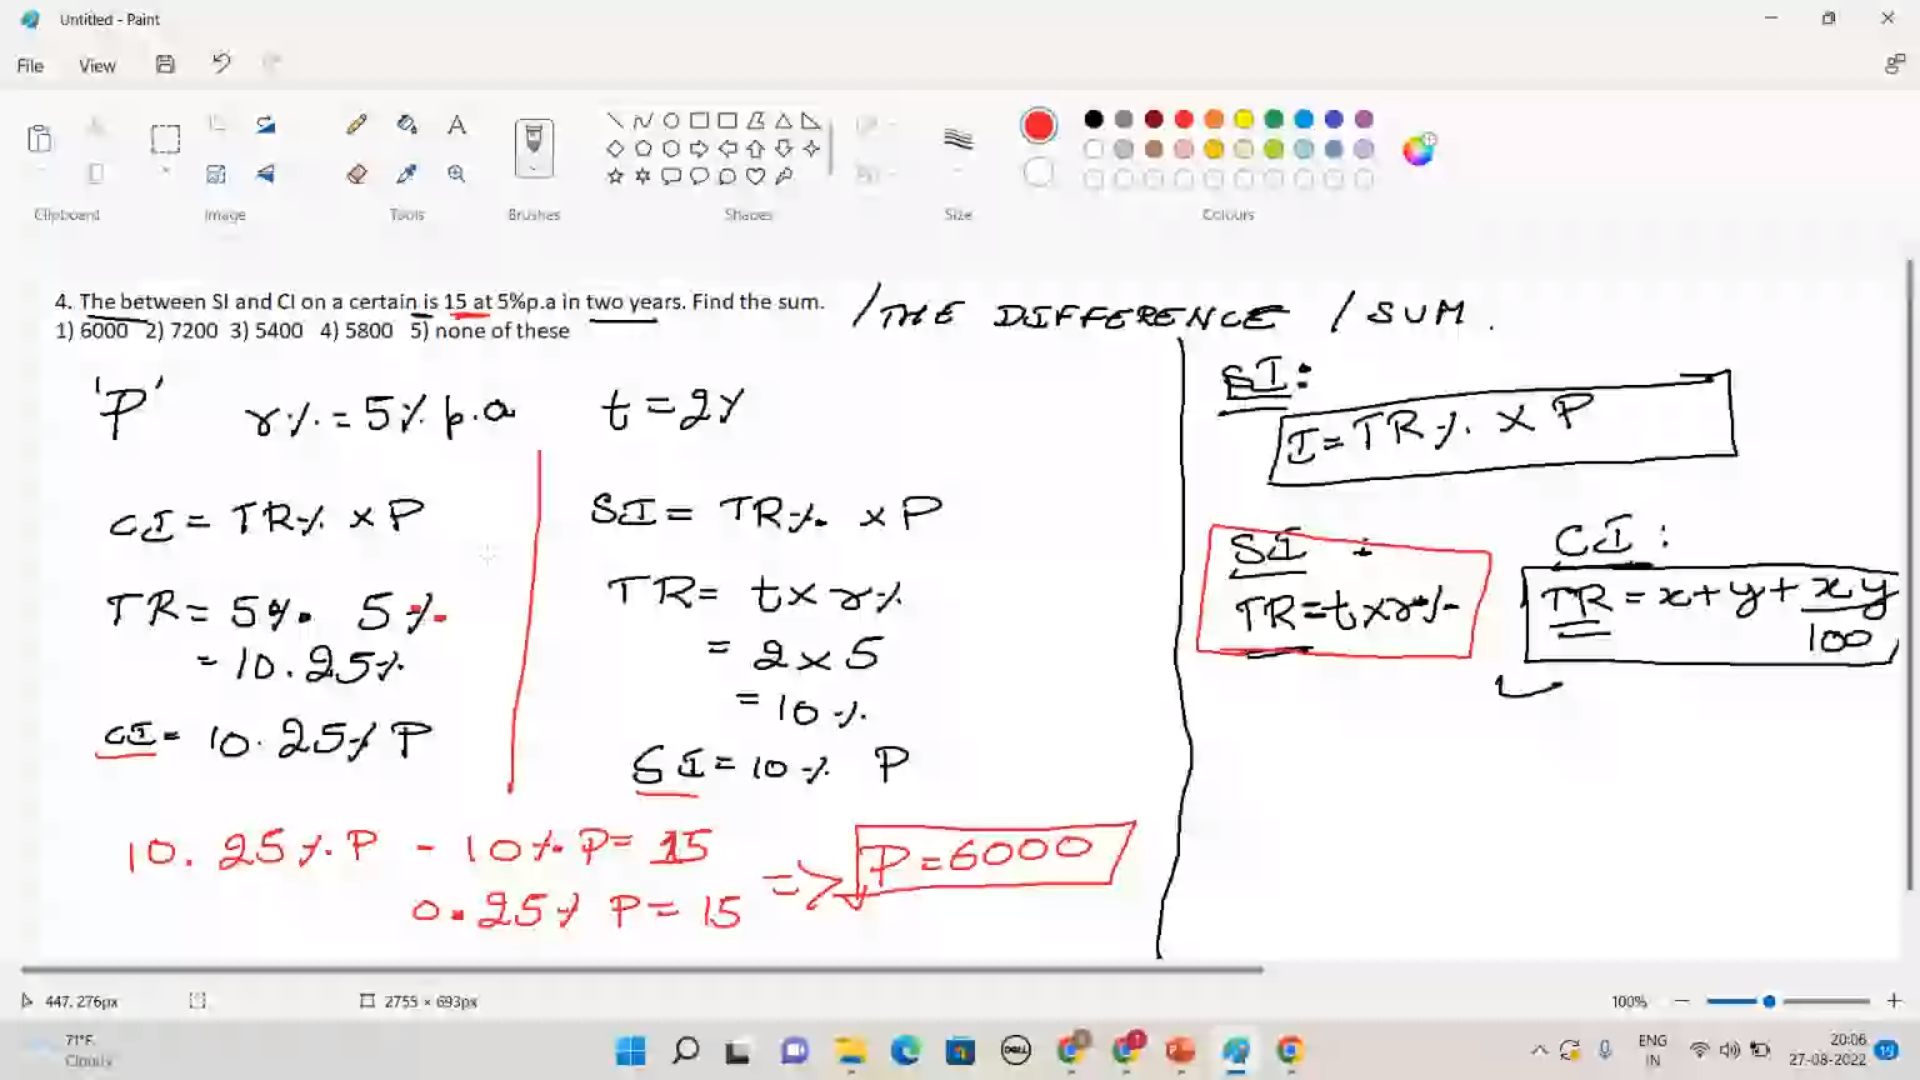 Untitled - Paint
File View
Clipboard Image Tools Brushes Shapes Size Colours
4. The between SI and CI on a certain is 15 at 5%p.a in two years. Find the sum.
1) 6000 2) 7200 3) 5400 4) 5800 5) none of these
/THE DIFFERENCE /SUM.
'P' r% = 5% p.a t = 2y
CI = TR% x P
TR = 5% 5%
= 10.25%
CI = 10.25% P
SI = TR% x P
TR = t x r%
= 2 x 5
= 10%
SI = 10% P
10.25% P - 10% P = 15
0.25% P = 15
=> P = 6000
SI:
I = TR% x P
SI :
TR = t x r%
CI :
TR = x + y + xy
100
447, 276px 2755 × 693px 100%
71°F
Cloudy
DELL
ENG
IN
20:06
27-08-2022